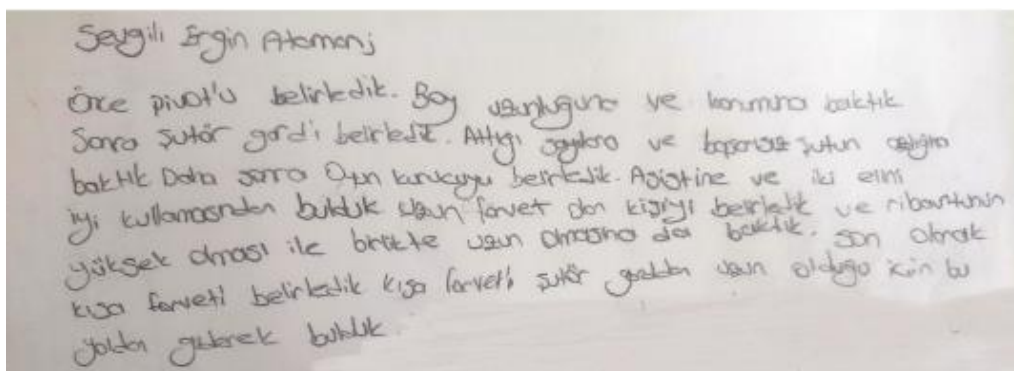 Sevgili Ergin Ataman;
Önce pivot'u belirledik. Boy uzunluğuna ve konumuna baktık
Sonra şutör gard'ı belirledik. Attığı sayılara ve başarısız şutun azlığına
baktık Daha sonra Oyun kurucuyu belirledik. Asistine ve iki elini
iyi kullanmasından bulduk uzun forvet olan kişiyi belirledik ve ribauntunun
yüksek olması ile birlikte uzun olmasına da baktık. son olarak
kısa forveti belirledik kısa forvet'i şutör gardan uzun olduğu için bu
yoldan giderek bulduk.